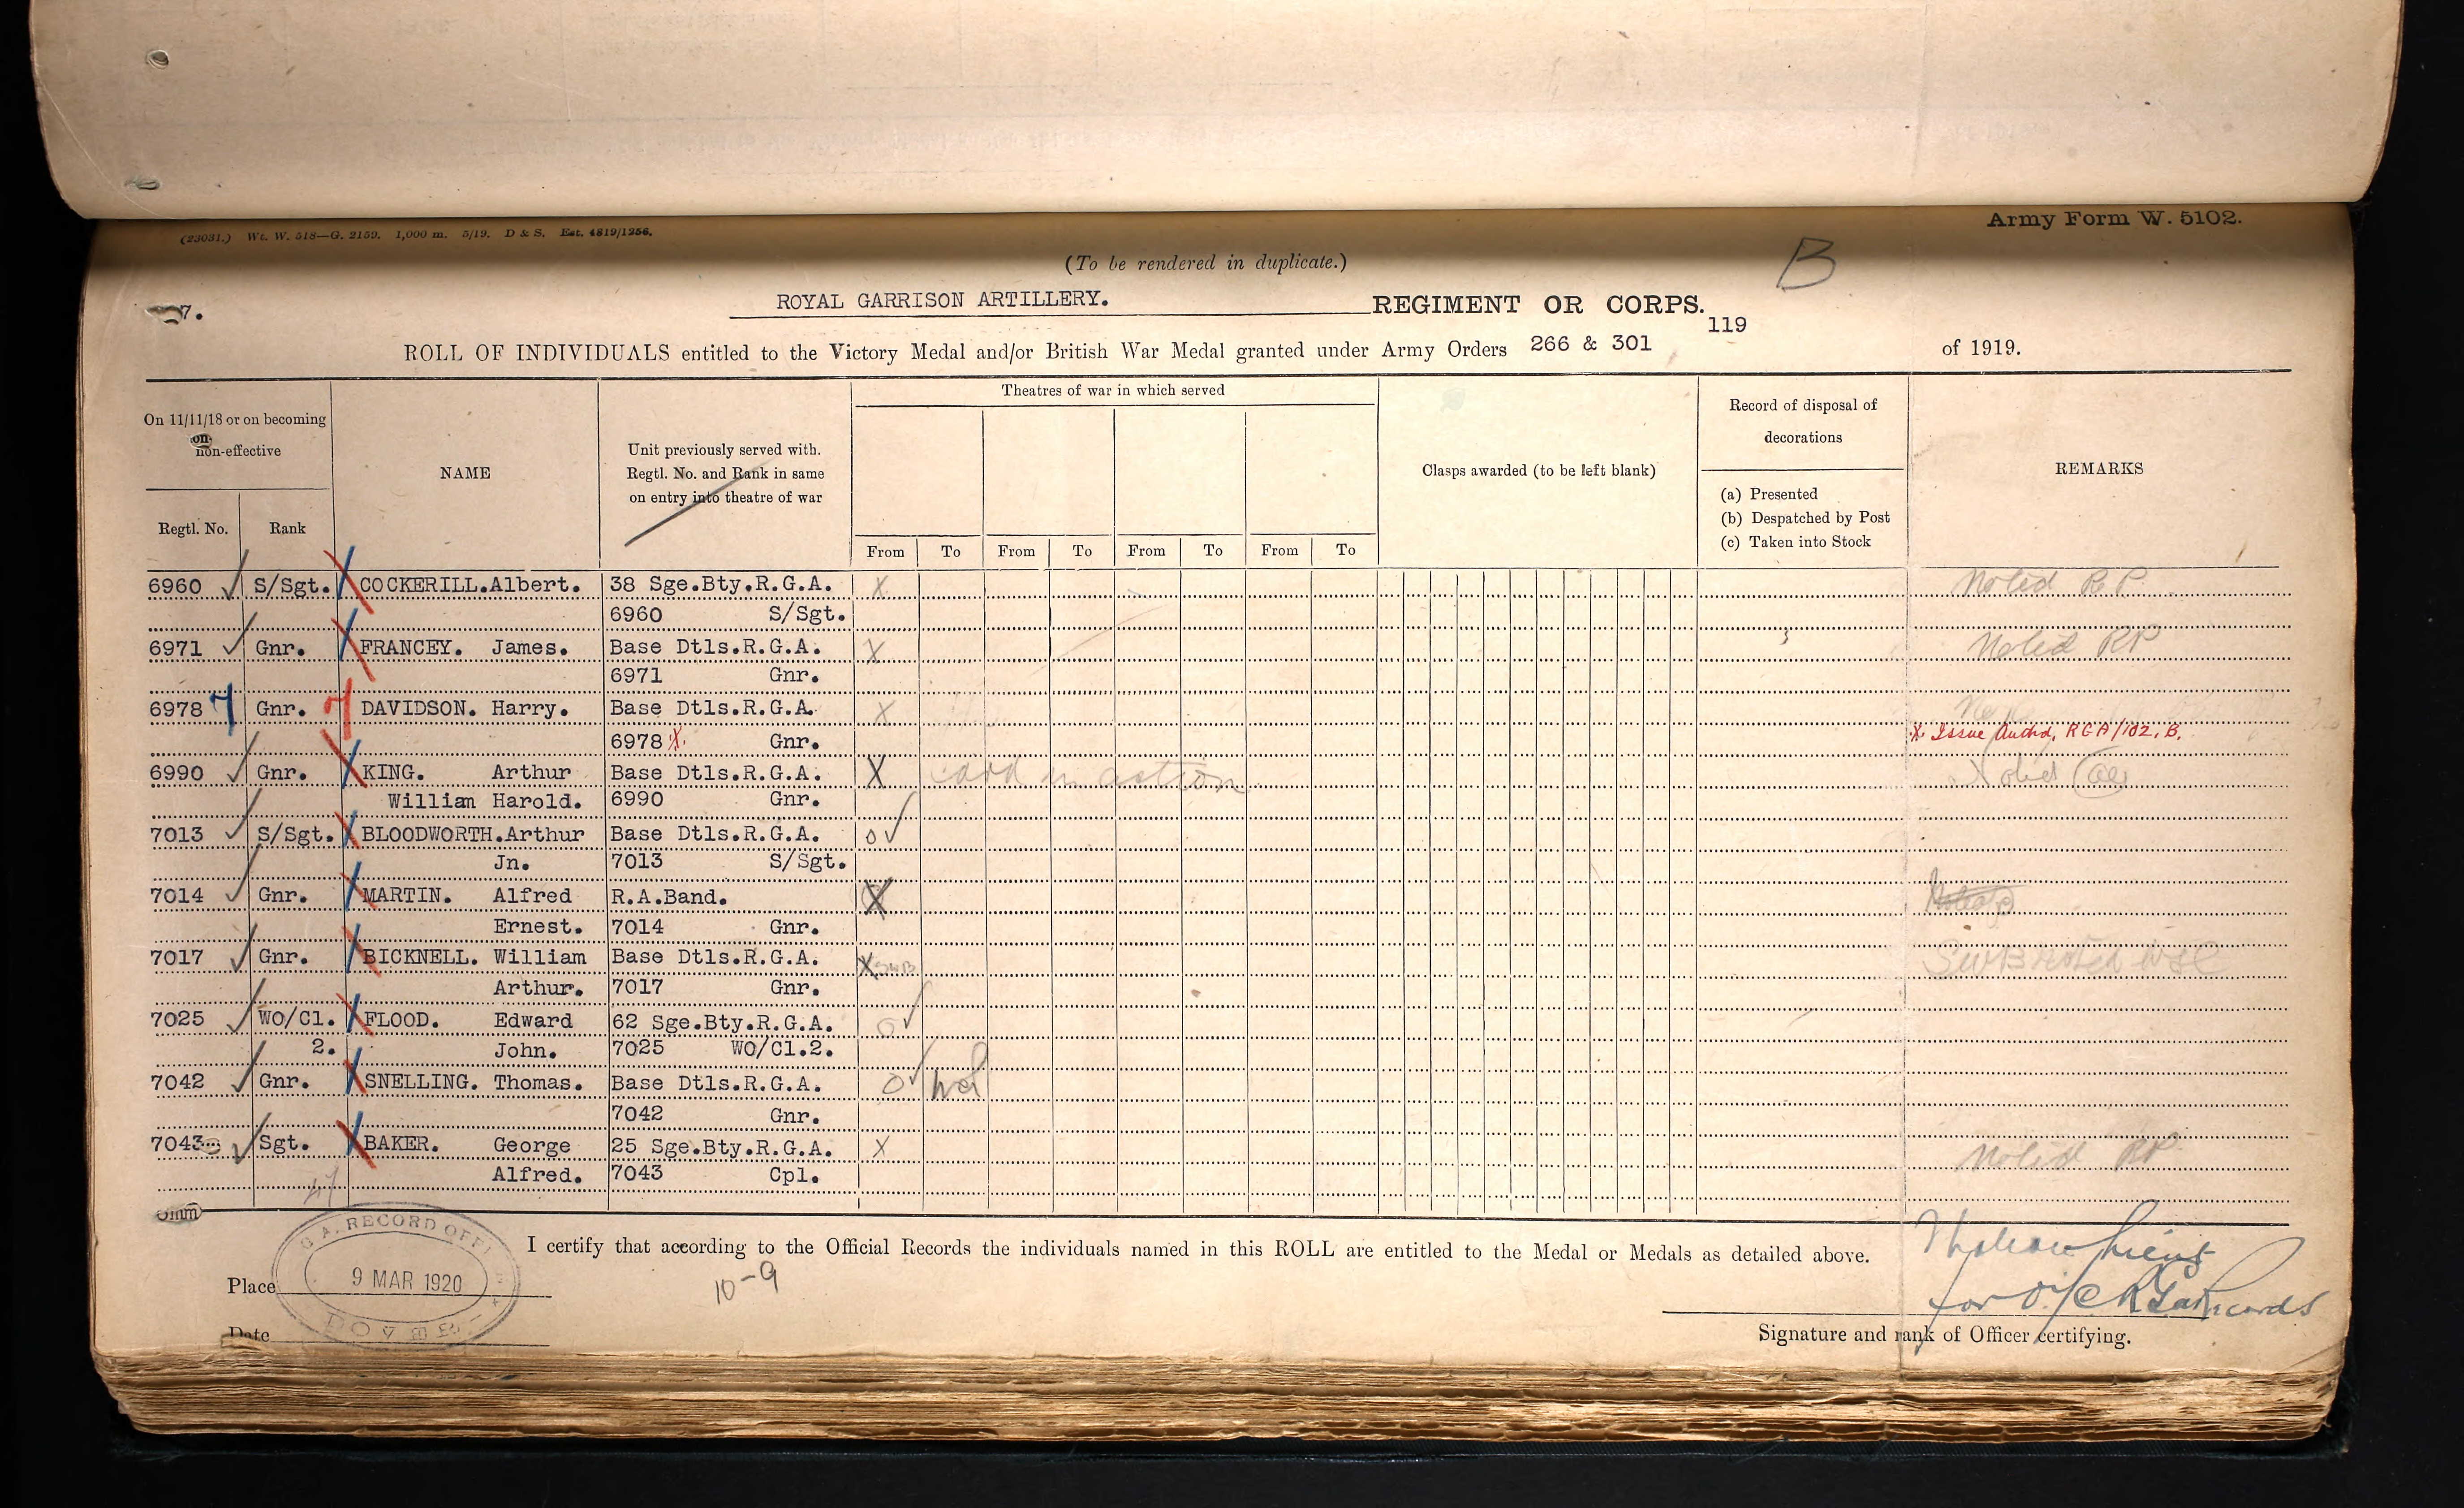 Army Form W. 5102.
(23031.) Wt. W. 518—G. 2159. 1,000 m. 5/19. D & S. Est. 4819/1256.
(To be rendered in duplicate.)
B
7.
ROYAL GARRISON ARTILLERY. REGIMENT OR CORPS.
119
ROLL OF INDIVIDUALS entitled to the Victory Medal and/or British War Medal granted under Army Orders 266 & 301 of 1919.
On 11/11/18 or on becoming
non-effective
Regtl. No. Rank
NAME
Unit previously served with.
Regtl. No. and Rank in same
on entry into theatre of war
Theatres of war in which served
From To From To From To From To
Clasps awarded (to be left blank)
Record of disposal of
decorations
(a) Presented
(b) Despatched by Post
(c) Taken into Stock
REMARKS
6960 S/Sgt. COCKERILL. Albert. 38 Sge.Bty.R.G.A. X Noted RP
6960 S/Sgt.
6971 Gnr. FRANCEY. James. Base Dtls.R.G.A. X Noted RP
6971 Gnr.
6978 Gnr. DAVIDSON. Harry. Base Dtls.R.G.A. X
6978 X Gnr. X Issue Authd, RGA/102, B.
6990 Gnr. KING. Arthur Base Dtls.R.G.A. X card in action Noted
William Harold. 6990 Gnr.
7013 S/Sgt. BLOODWORTH. Arthur Base Dtls.R.G.A. o
Jn. 7013 S/Sgt.
7014 Gnr. MARTIN. Alfred R.A.Band. X
Ernest. 7014 Gnr.
7017 Gnr. BICKNELL. William Base Dtls.R.G.A. X SWB SWB Noted
Arthur. 7017 Gnr.
7025 WO/Cl. FLOOD. Edward 62 Sge.Bty.R.G.A. o
2. John. 7025 WO/Cl.2.
7042 Gnr. SNELLING. Thomas. Base Dtls.R.G.A. o
7042 Gnr.
7043 Sgt. BAKER. George 25 Sge.Bty.R.G.A. X Noted RP
Alfred. 7043 Cpl.
I certify that according to the Official Records the individuals named in this ROLL are entitled to the Medal or Medals as detailed above.
10-9
Place
A. RECORD OFFI
9 MAR 1920
DOVER
Date
Lieut
for O i/c RGA Records
Signature and rank of Officer certifying.